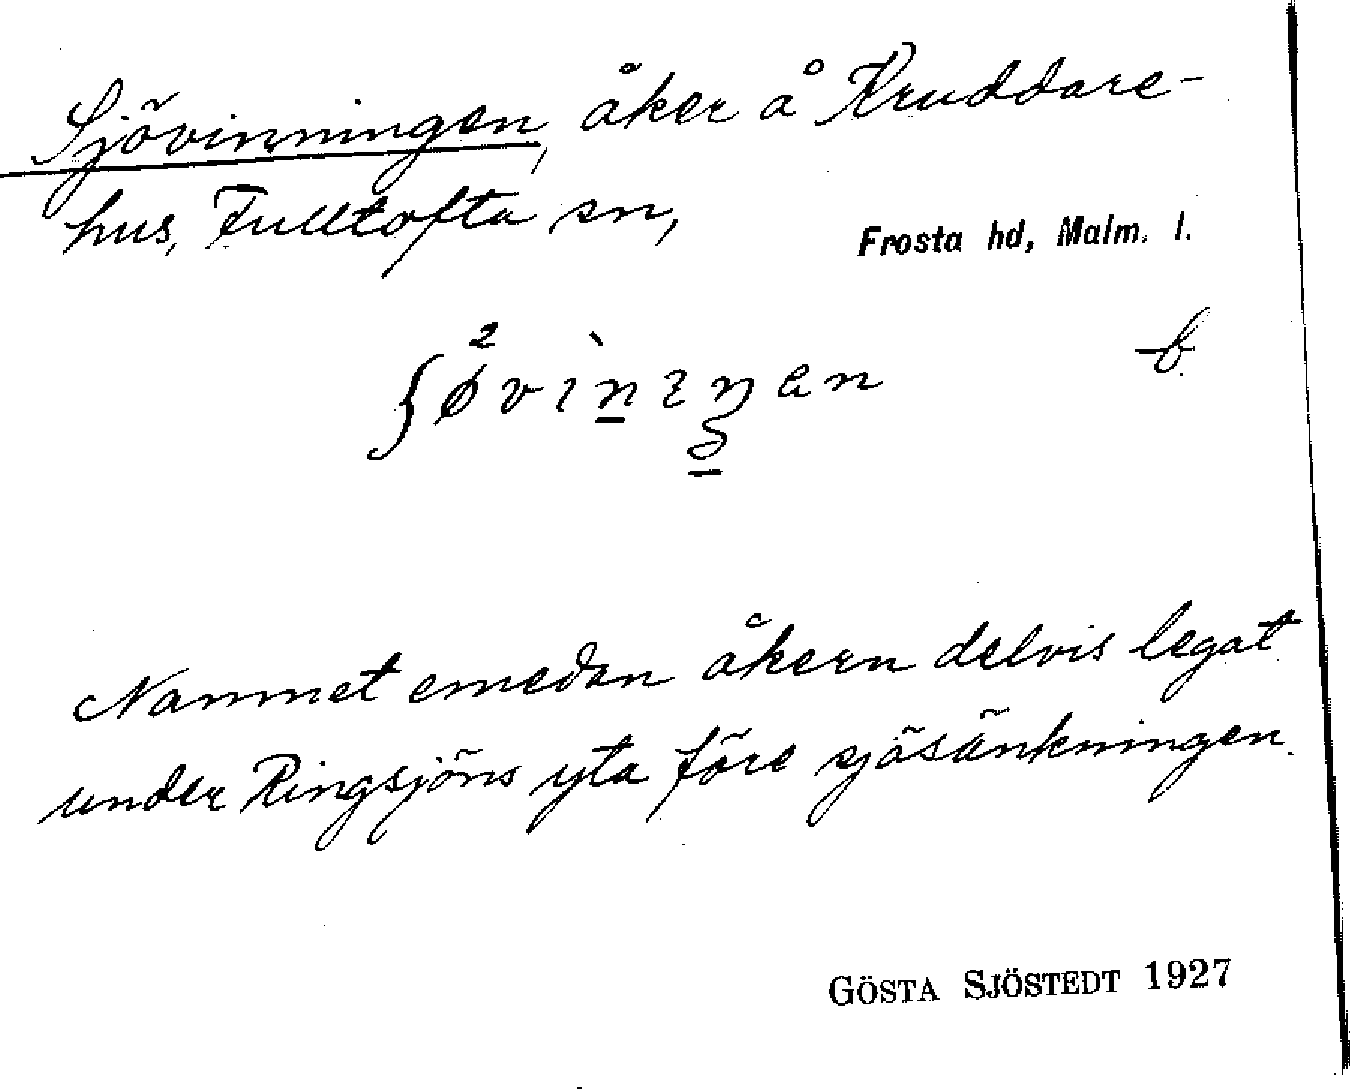 Sjövinningen, åker å Kruddare-
hus, Fulltofta sn, Frosta hd, Malm. l.
b.
Namnet emedan åkern delvis legat
under Ringsjöns yta före sjösänkningen.
GÖSTA SJÖSTEDT 1927